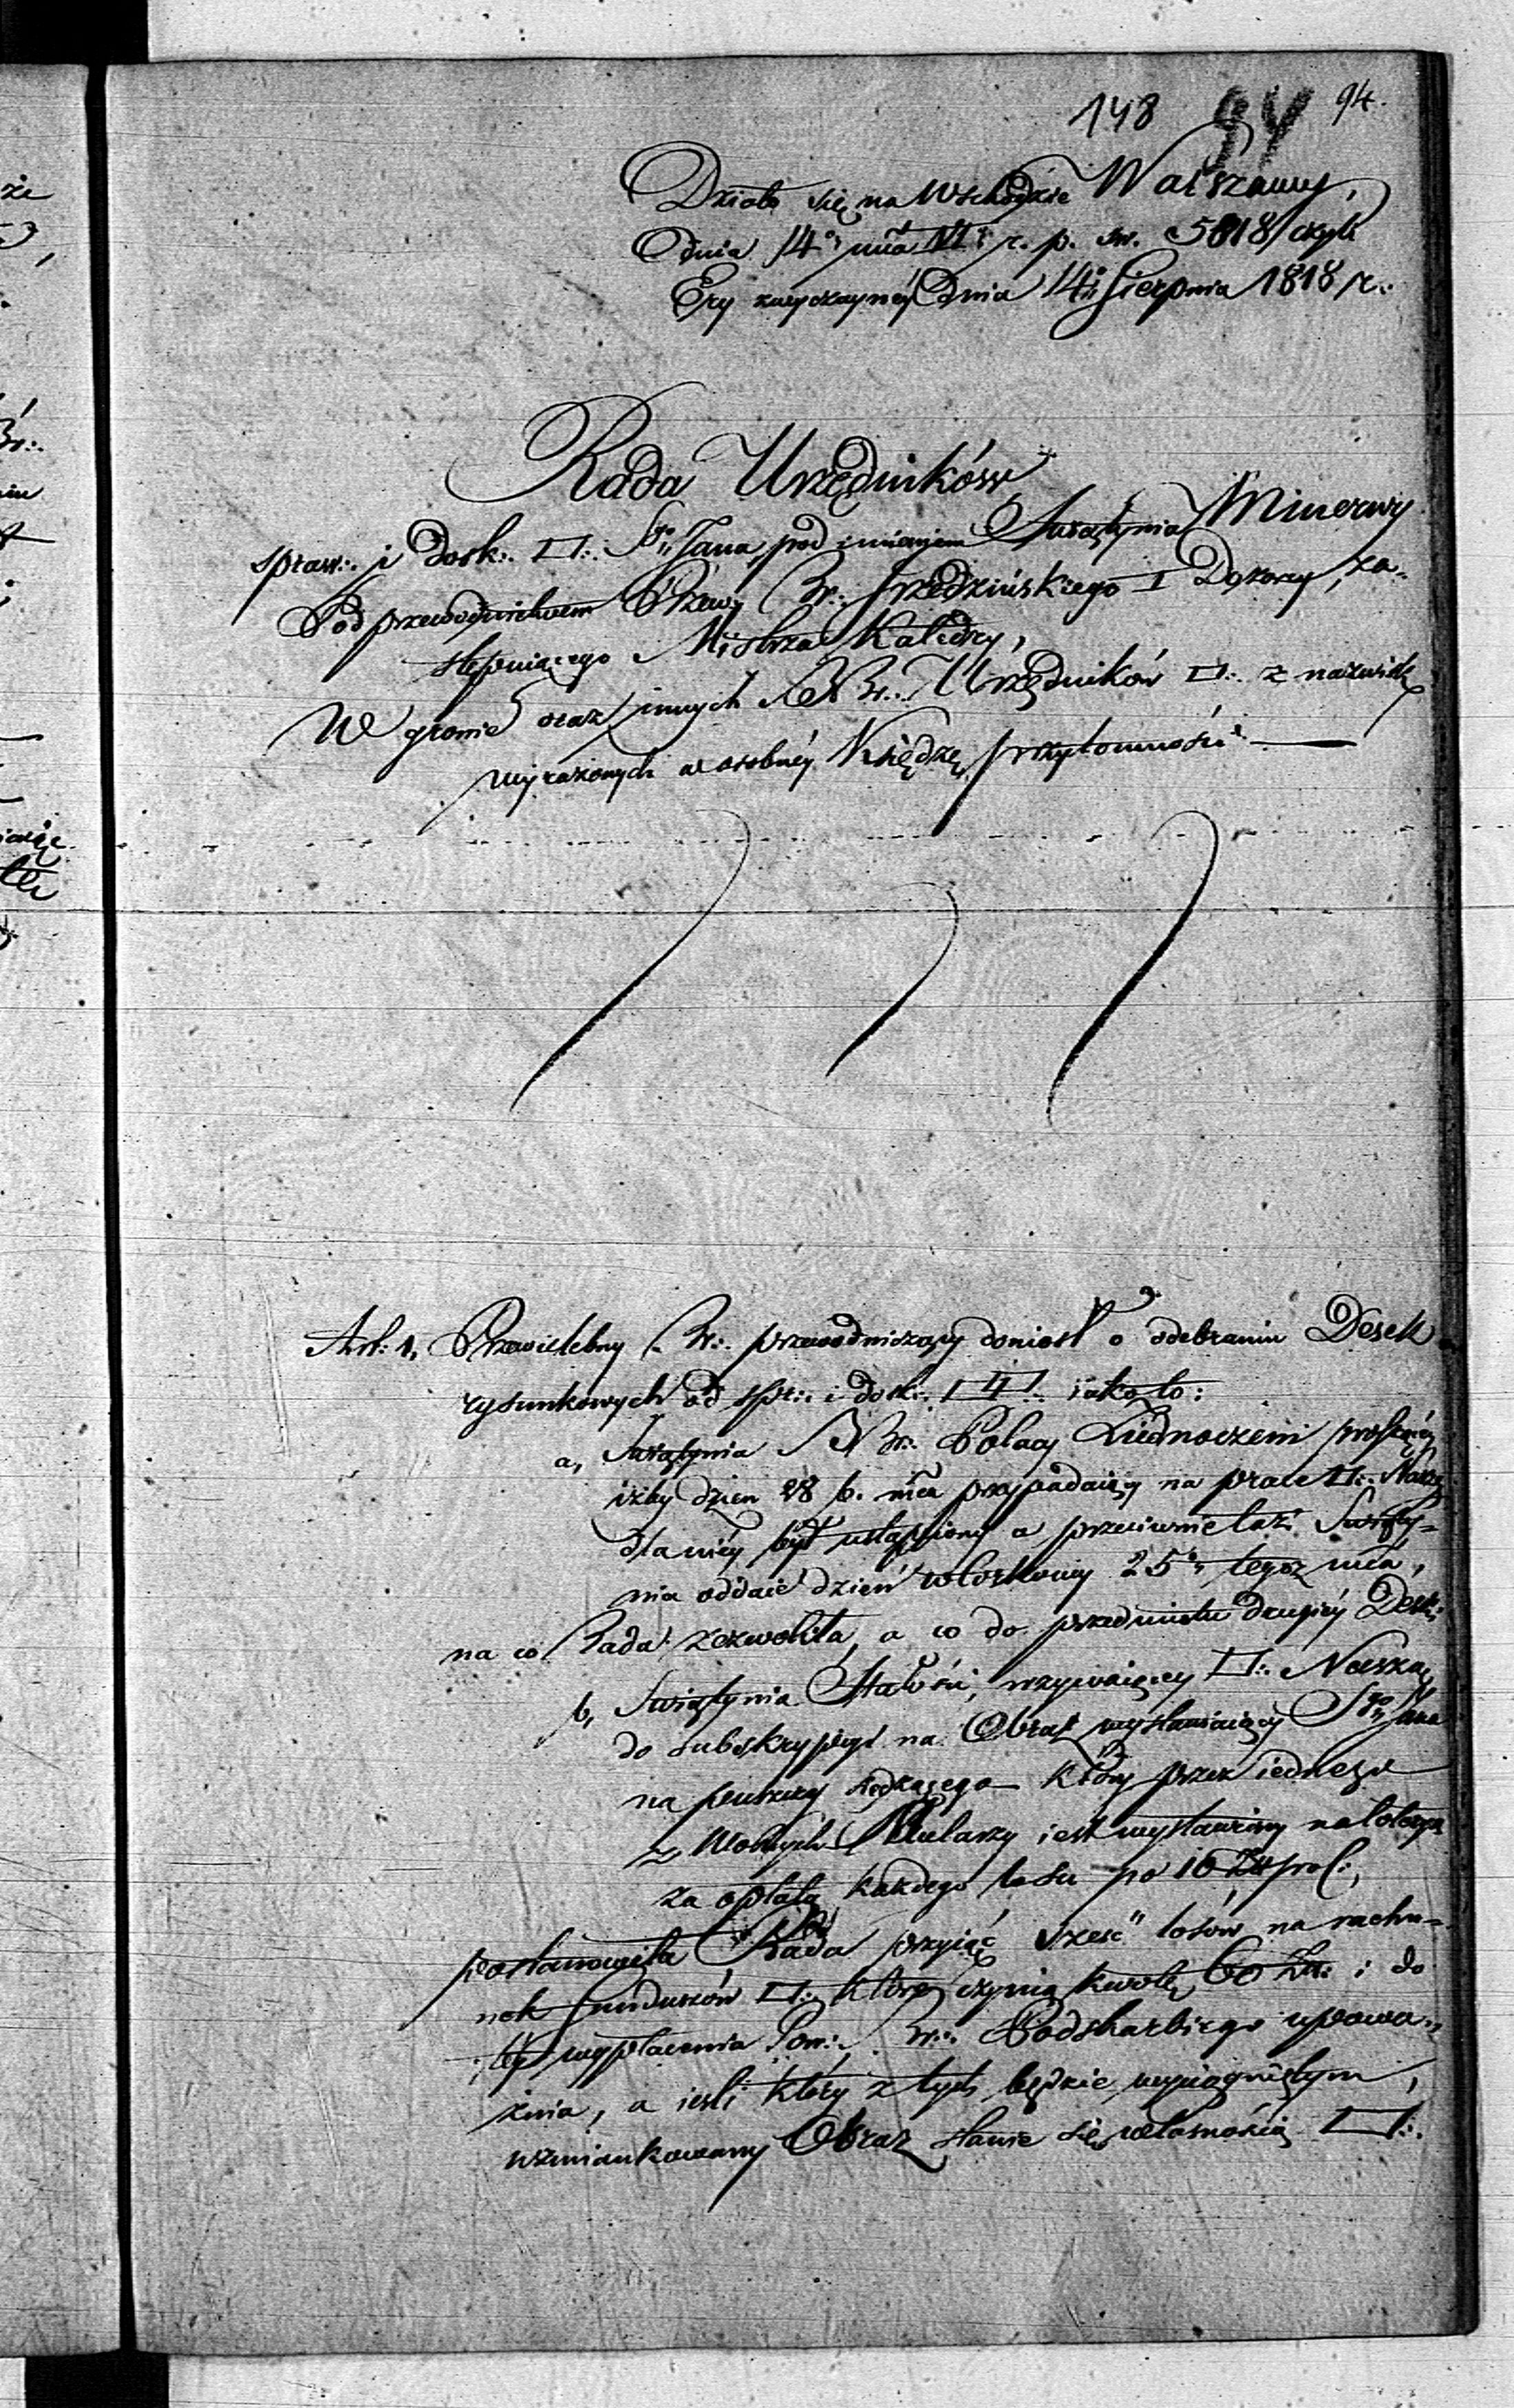 148 94 94.
Działo się na Wschodzie Warszawy,
Dnia 14º mca VI r. p. sw. 5818 czyli
Ery zwyczayney Dnia 14º Sierpnia 1818 r.
Rada Urzędników
spraw:. i dosk:. □:. Sgo Jana pod imieniem Swiątynia Minerwy
Pod przewodnictwem Przew Br:. Brzedzińskiego I Dozorcy, za-
stępuiącego Mistrza Katedry,
W gronie oraz innych NN Br:. Urzędników □:. z nazwisk
wyrażonych w osobney Księdze przytomności —
Art: 1, Przewielebny Br:. przewodniczący doniosł o odebraniu Desek
rysunkowych od spr:. i dosk:. □□:. iako to:
a, Swiątynia NN Br:. Polacy Ziednoczeni proszącey
iżby dzien 28 b. mca przypadaiący na prace □:. Naszey
dla niey był ustąpiony a przeciwnie taż Swiąty-
nia oddaie dzień wtorkowy 25º tegoż mca,
na co Rada zezwoliła, a co do przedmiotu drugiey Deski
b, Swiątynia Stałości, wzywaiącey □:. Naszą
do subskrypcyi na Obraz wystawiaiący Sgo Jana
na puszczy każącego który przez iednego
z Wolnych Mularzy iest wystawiony na loteryą
za opłatą każdego losu po 10 Zł pol:,
postanowiła Rada przyiąć sześć losów na rachu-
nek funduszów □:. które czynią kwotę 60 Zł: i do
tey wypłacenia Pow:. Br:. Podskarbiego upowa-
żnia, a iesli który z tych będzie wyciągniętym,
wzmiankowany Obraz stanie się własnością □:.